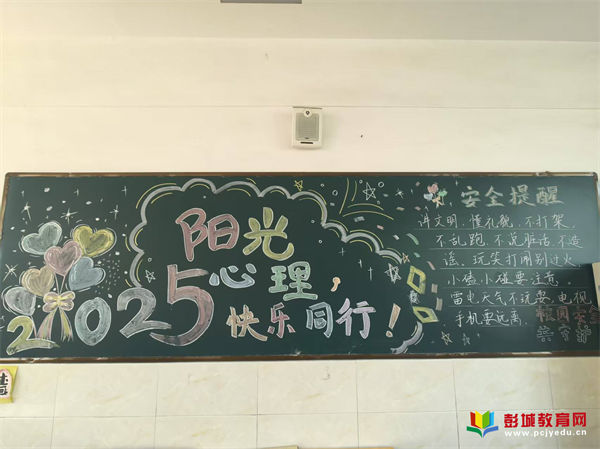 2025
阳光
心理，
快乐同行！
安全提醒
讲文明，懂礼貌，不打架，
不乱跑，不说脏话，不造
谣，玩笑打闹别过火
小磕小碰要注意，
雷电天气不玩耍，电视
手机要远离，
彭城教育网
www.pcjyedu.cn